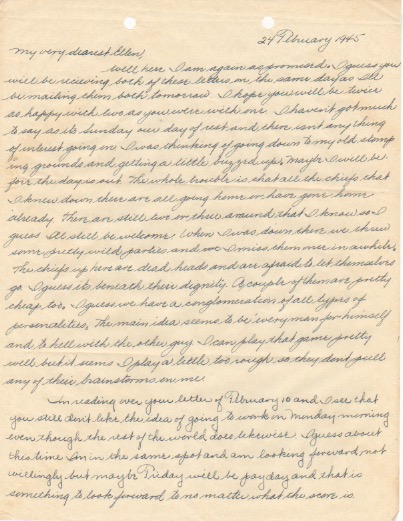 24 February 1945
My very dearest Ellen,
Well here I am again as promised. I guess you
will be recieving both of these letters on the same day as I'll
be mailing them both tomorrow. I hope you will be twice
as happy with two as you were with one. I haven't got much
to say as its Sunday our day of rest and there isnt any thing
of interest going on. I was thinking of going down to my old stomp
ing grounds and getting a little buzzed up. Maybe I will be
fore the day is out. The whole trouble is that all the chiefs that
I knew down there are all going home or have gone home
already. There are still two or three around that I know so I
guess I'll still be welcome. When I was down there we threw
some pretty wild parties and we I miss them once in awhile.
The chiefs up here are dead heads and are afraid to let themselves
go. I guess its beneath their dignity. A couple of them are pretty
cheap too. I guess we have a conglomeration of all types of
personalities. The main idea seems to be everyman for himself
and to hell with the other guy. I can play that game pretty
well but it seems I play a little too rough so they dont pull
any of their brainstorms on me.
In reading over your letter of February 10 and I see that
you still don't like the idea of going to work on Monday morning
even though the rest of the world does likewise. I guess about
this time Im in the same spot and am looking forward not
willingly but maybe Friday will be payday and that is
something to look forward to no matter what the score is.